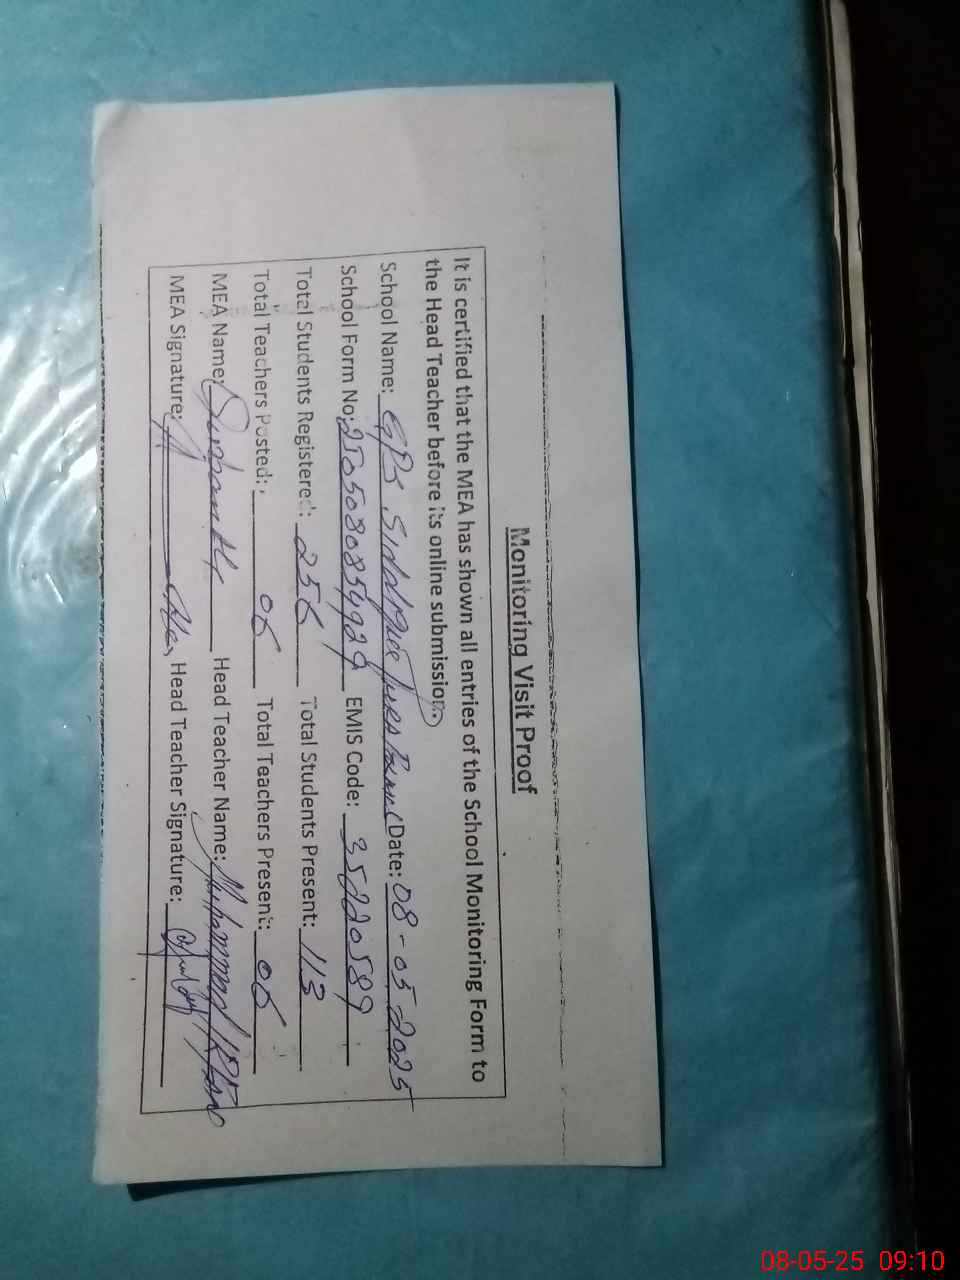 Monitoring Visit Proof
It is certified that the MEA has shown all entries of the School Monitoring Form to
the Head Teacher before its online submission.
School Name: GPS Date: 08-05-2025
School Form No: 250508085929 EMIS Code: 35220589
Total Students Registered: 256 Total Students Present: 113
Total Teachers Posted: 06 Total Teachers Present: 06
MEA Name: Head Teacher Name: Muhammad
MEA Signature: Head Teacher Signature:
08-05-25 09:10